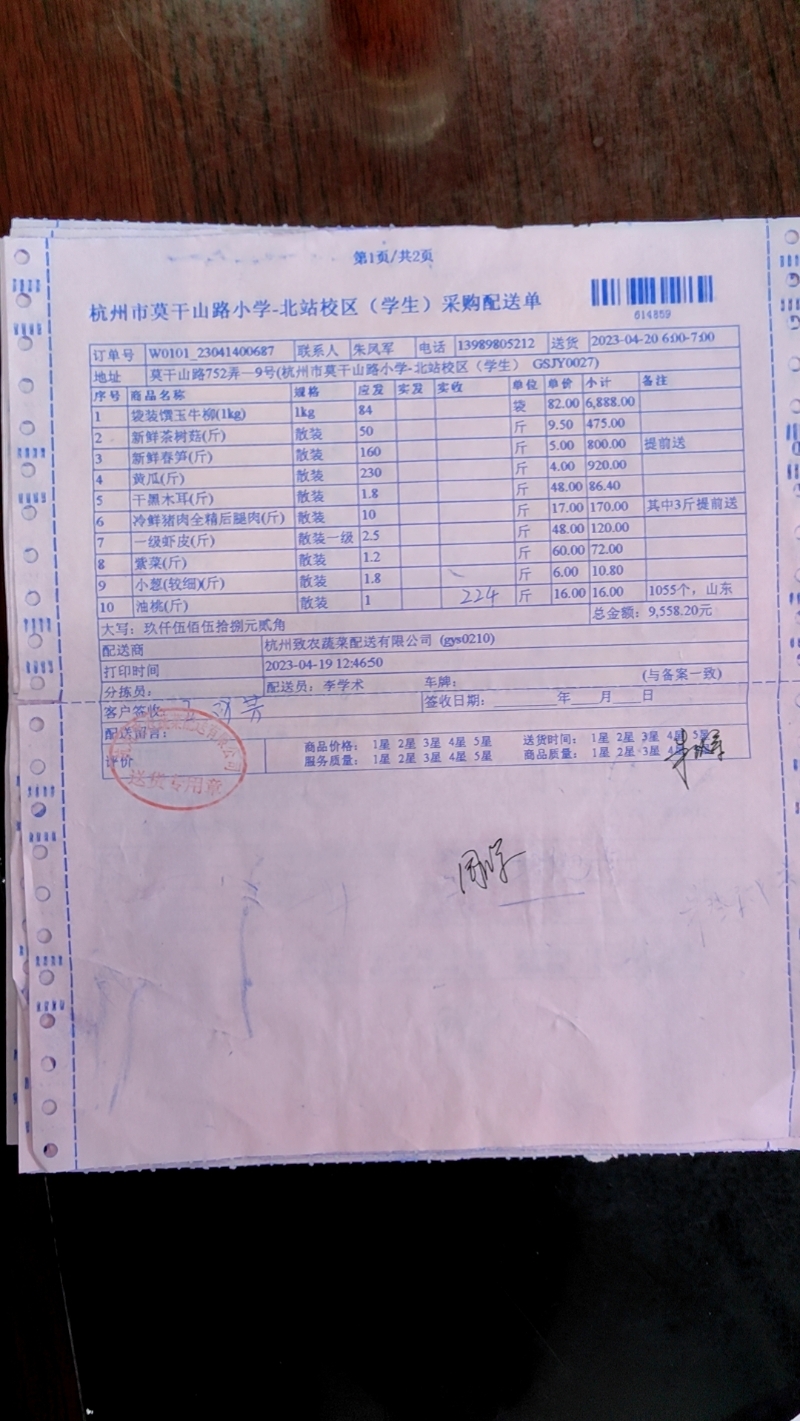 第1页/共2页
杭州市莫干山路小学-北站校区（学生）采购配送单
614859
订单号 W0101_23041400687 联系人 朱凤军 电话 13989805212 送货 2023-04-20 6:00-7:00
地址 莫干山路752弄一9号(杭州市莫干山路小学-北站校区（学生） GSJY0027)
序号 商品名称 规格 应发 实发 实收 单位 单价 小计 备注
1 袋装馔玉牛柳(1kg) 1kg 84 袋 82.00 6,888.00
2 新鲜茶树菇(斤) 散装 50 斤 9.50 475.00
3 新鲜春笋(斤) 散装 160 斤 5.00 800.00 提前送
4 黄瓜(斤) 散装 230 斤 4.00 920.00
5 干黑木耳(斤) 散装 1.8 斤 48.00 86.40
6 冷鲜猪肉全精后腿肉(斤) 散装 10 斤 17.00 170.00 其中3斤提前送
7 一级虾皮(斤) 散装一级 2.5 斤 48.00 120.00
8 紫菜(斤) 散装 1.2 斤 60.00 72.00
9 小葱(较细)(斤) 散装 1.8 斤 6.00 10.80
10 油桃(斤) 散装 1 224 斤 16.00 16.00 1055个，山东
大写：玖仟伍佰伍拾捌元贰角 总金额：9,558.20元
配送商 杭州致农蔬菜配送有限公司 (gys0210)
打印时间 2023-04-19 12:46:50
分拣员： 配送员：李学术 车牌： (与备案一致)
客户签收： 签收日期：____年____月____日
配送留言：
评价 商品价格： 1星 2星 3星 4星 5星 送货时间： 1星 2星 3星 4星 5星
服务质量： 1星 2星 3星 4星 5星 商品质量： 1星 2星 3星
送货专用章